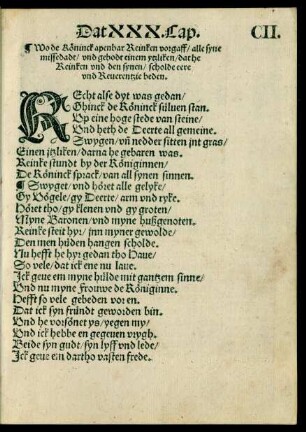 Dat XXX. Cap. CII.
¶ Wo de Köninck apenbar Reinken vorgaff / alle syne
missedadt / vnd gebodt einem ytzliken / dat he
Reinken vnd den synen / scholde eere
vnd Reuerentzie beden.
REcht alse dyt was gedan /
Ghinck de Köninck süluen stan.
Vp eine hoge stede van steine /
Vnd heth de Deerte all gemeine.
Swygen / vñ nedder sitten jnt gras /
Einen jtzliken / darna he gebaren was.
Reinke stundt by der Königinnen /
De Köninck sprack / van all synen sinnen.
¶ Swyget / vnd höret alle gelyke /
Gy Vögele / gy Deerte / arm vnd ryke.
Höret tho / gy klenen vnd gy groten /
Myne Baronen / vnd myne hußgenoten.
Reinke steit hyr / jnn myner gewolde /
Den men hüden hangen scholde.
Nu hefft he hyr gedan tho Haue /
So vele / dat ick ene nu laue.
Ick geue em myne hülde mit gantzem sinne /
Vnd nu myne Frouwe de Königinne.
Hefft so vele gebeden vor en.
Dat ick syn fründt geworden bin.
Vnd he vorsönet ys / yegen my /
Vnd ick hebbe en gegeuen vrygh.
Beide syn gudt / syn lyff vnd lede /
Ick geue em dartho vasten frede.